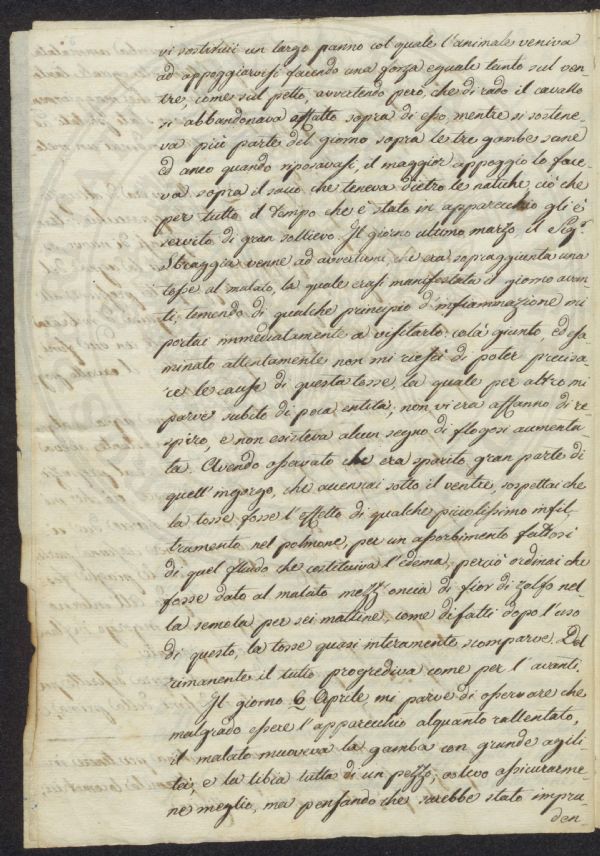 vi sostituii un largo panno col quale l'animale veniva
ad appoggiarvisi facendo una gonza eguale tanto sul ven-
tre, come sul petto, avvertendo però, che di rado il cavallo
si abbandonava affatto sopra di esso, mentre si sostene-
va più parte del giorno sopra le tre gambe sane
ed anco quando riposavasi, il maggior appoggio lo face-
va sopra il sacco che teneva dietro le natiche, ciò che
per tutto il tempo che è stato in apparecchio gli è
servito di gran sollievo. Il giorno ultimo marzo il Sigr.
Sbraggia venne ad avvertirmi, che era sopraggiunta una
tosse al malato, la quale erasi manifestata il giorno avan-
ti; temendo di qualche principio d'infiammazione mi
portai immediatamente a visitarlo: colà giunto, ed esa-
minato attentamente non mi riescì di poter precisa-
re le cause di questa tosse, la quale per altro mi
parve subito di poca entità; non vi era affanno di re-
spiro, e non esisteva alcun segno di flogosi aumenta-
ta. Avendo osservato che era sparito gran parte di
quell'ingorgo, che accennai sotto il ventre, sospettai che
la tosse fosse l'effetto di qualche piccolissimo infil-
tramento nel polmone, per un assorbimento fattosi
di quel fluido che costituiva l'edema; perciò ordinai che
fosse dato al malato mezz'oncia di fior di zolfo nel-
la semola per sei mattine, come difatti dopo l'uso
di questo, la tosse quasi interamente scomparve. Del
rimanente il tutto progrediva come per l'avanti.
Il giorno 6 Aprile, mi parve di osservare che
malgrado essere l'apparecchio alquanto rallentato,
il malato muoveva la gamba con grande agili-
tà, e la tibia tutta di un pezzo; volevo assicurarme-
ne meglio, ma pensando che sarebbe stato impru
den-